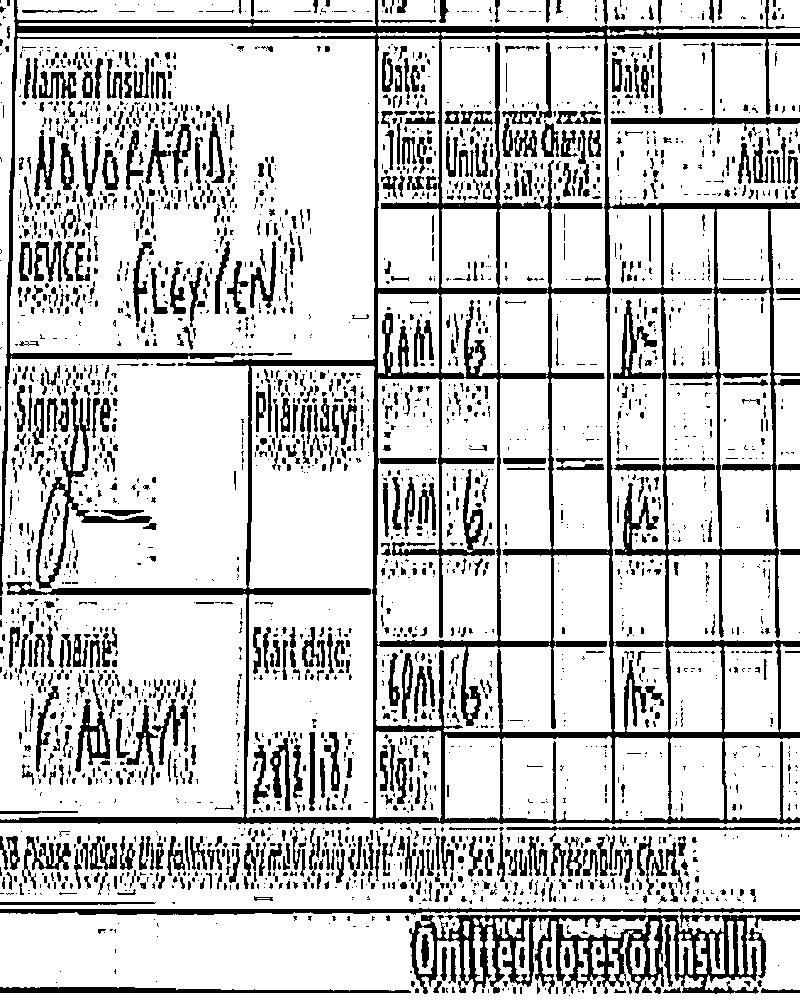 Name of Insulin:
NOVORAPID
DEVICE:
FLEXPEN
Signature:
Pharmacy:
Print name:
ADLAM
Start date:
Date:
Date:
Time:
Units:
Dose Changes
1st 2nd
Admin
8AM 6
12PM 6
6PM 6
Sig:
NB Please indicate the following on main drug chart: "Insulin - See Insulin Prescribing Chart"
Omitted doses of Insulin